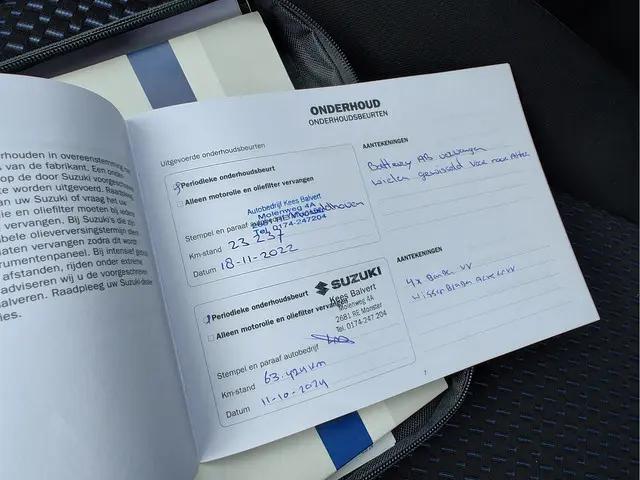 rhouden in overeenstemming
s van de fabrikant. Een onder
op de door Suzuki voorgeschreven
te worden uitgevoerd. Raadpleeg
an uw Suzuki of vraag het uw
ie en oliefilter moeten bij iedere
vervangen. Bij Suzuki's die
bele olieverversingstermijn
laten vervangen zodra dit wordt
rumentenpaneel. Bij intensief
afstanden, rijden onder extreme
adviseren wij u de voorgeschreven
alveren. Raadpleeg uw Suzuki-dealer
ies.
ONDERHOUD
ONDERHOUDSBEURTEN
Uitgevoerde onderhoudsbeurten
Periodieke onderhoudsbeurt
Alleen motorolie en oliefilter vervangen
Autobedrijf Kees Balvert
Molenweg 4A
Tel. 0174-247204
Stempel en paraaf
Km-stand 23 237
Datum 18-11-2022
AANTEKENINGEN
Battery AB vervangen
wielen gewisseld Voor naar Achter
SUZUKI
Periodieke onderhoudsbeurt
Kees Balvert
Alleen motorolie en oliefilter vervangen
Molenweg 4A
2681 RE Monster
Tel. 0174-247 204
Stempel en paraaf autobedrijf
Km-stand 63.424 km
Datum 11-10-2024
AANTEKENINGEN
4x Banden VV
Wisserbladen Achter VV
7